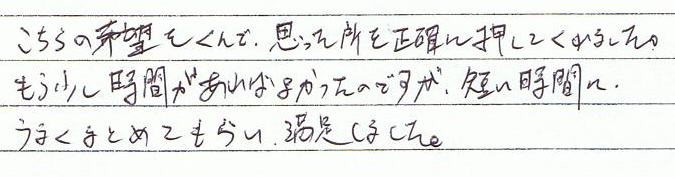 こちらの希望をくんで、思った所を正確に押してくれました。
もう少し時間があればよかったのですが、短い時間に、
うまくまとめてもらい、満足しました。